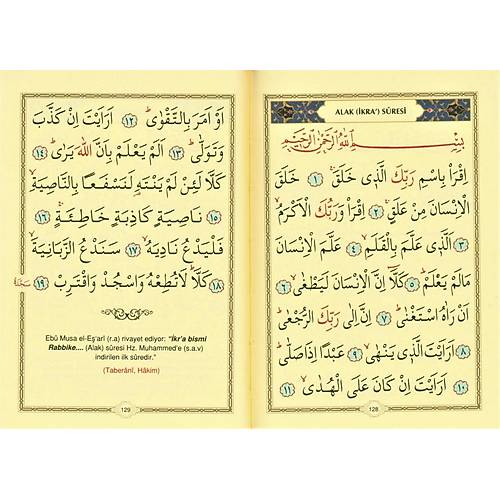 ALAK (İKRA') SÛRESİ
بِسْمِ اللّٰهِ الرَّحْمٰنِ الرَّحِيمِ
اِقْرَأْ بِاسْمِ رَبِّكَ الَّذ۪ي خَلَقَۚ ﴿١﴾ خَلَقَ
الْاِنْسَانَ مِنْ عَلَقٍۚ ﴿٢﴾ اِقْرَأْ وَرَبُّكَ الْاَكْرَمُۙ
﴿٣﴾ اَلَّذ۪ي عَلَّمَ بِالْقَلَمِۙ ﴿٤﴾ عَلَّمَ الْاِنْسَانَ
مَالَمْ يَعْلَمْۜ ﴿٥﴾ كَلَّٓا اِنَّ الْاِنْسَانَ لَيَطْغٰىۙ ﴿٦﴾
اَنْ رَاٰهُ اسْتَغْنٰىۜ ﴿٧﴾ اِنَّ اِلٰى رَبِّكَ الرُّجْعٰىۜ
﴿٨﴾ اَرَاَيْتَ الَّذ۪ي يَنْهٰىۙ ﴿٩﴾ عَبْدًا اِذَا صَلّٰىۜ
﴿١٠﴾ اَرَاَيْتَ اِنْ كَانَ عَلَى الْهُدٰىۙ ﴿١١﴾
128
اَوْ اَمَرَ بِالتَّقْوٰىۜ ﴿١٢﴾ اَرَاَيْتَ اِنْ كَذَّبَ
وَتَوَلّٰىۜ ﴿١٣﴾ اَلَمْ يَعْلَمْ بِاَنَّ اللّٰهَ يَرٰىۜ ﴿١٤﴾
كَلَّا لَئِنْ لَمْ يَنْتَهِ لَنَسْفَعًا بِالنَّاصِيَةِۙ
﴿١٥﴾ نَاصِيَةٍ كَاذِبَةٍ خَاطِئَةٍۚ ﴿١٦﴾
فَلْيَدْعُ نَادِيَهُۙ ﴿١٧﴾ سَنَدْعُ الزَّبَانِيَةَۙ
﴿١٨﴾ كَلَّاۜ لَا تُطِعْهُ وَاسْجُدْ وَاقْتَرِبْ ﴿١٩﴾
Ebû Musa el-Eş'arî (r.a) rivayet ediyor: "İkr'a bismi
Rabbike.... (Alak) sûresi Hz. Muhammed'e (s.a.v)
indirilen ilk sûredir."
(Taberânî, Hâkim)
129